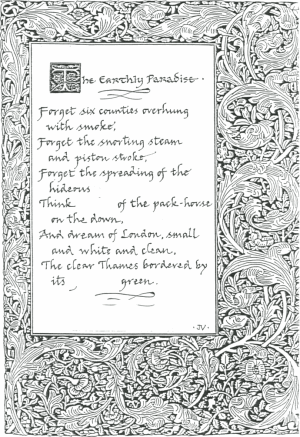 The Earthly Paradise.
Forget six counties overhung
with smoke,
Forget the snorting steam
and piston stroke,
Forget the spreading of the
hideous
Think of the pack-horse
on the down,
And dream of London, small
and white and clean,
The clear Thames bordered by
its green.
JV